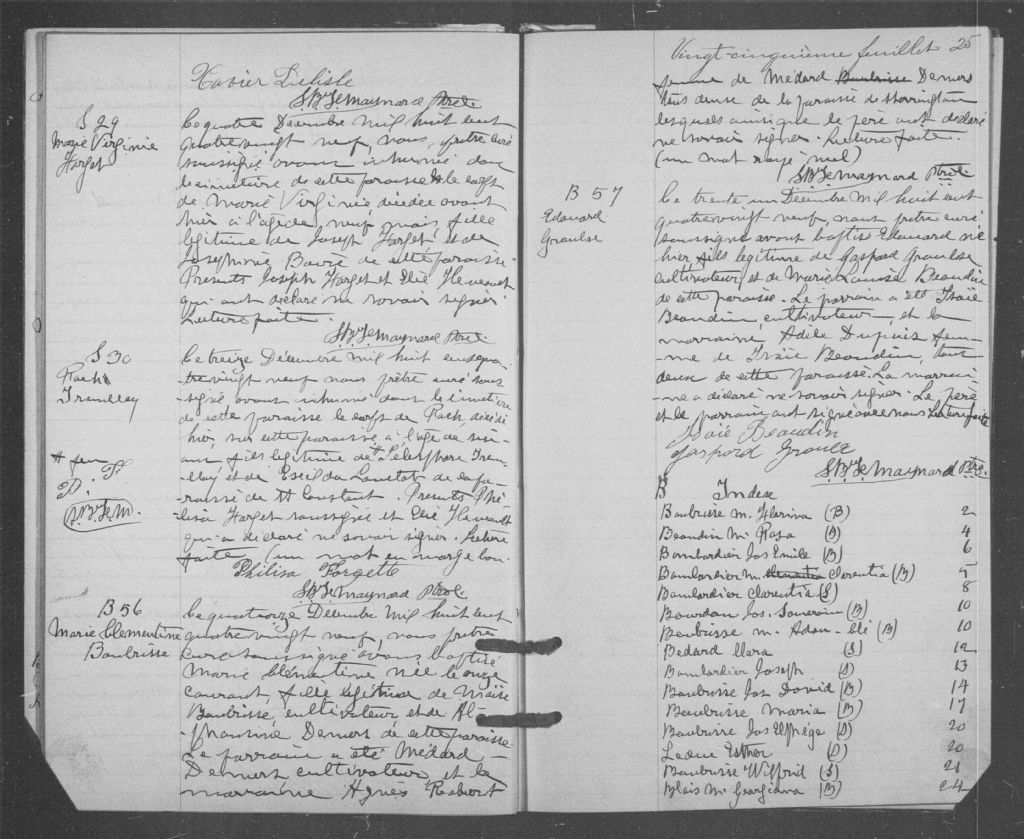 Xavier Delisle
Ptre
S 29
Marie Virginie
Forget
Le quatre Décembre mil huit cent
quatre vingt neuf, nous, prêtre curé
soussigné avons inhumé dans
le cimetière de cette paroisse le corps
de Marie Virginie décédée avant
hier à l'âge de neuf mois, fille
légitime de Joseph Forget et de
Josephine de cette paroisse.
Présents Joseph Forget et Elie
qui ont déclaré ne savoir signer.
Lecture faite.
Ptre
S 30
Roch
Tremblay
Le treize Décembre mil huit cent qua
tre vingt neuf nous prêtre curé sous
signé avons inhumé dans le cimetière
de cette paroisse le corps de Roch, décédé
hier, sur cette paroisse à l'âge de six
ans fils légitime de Télesphore Trem-
-blay et de de la pa-
-roisse de St Constant. Présents Phi-
-lisa Forget soussignée et Elie
qui a déclaré ne savoir signer. Lecture
faite (un mot en marge bon.
# feu
P. F
Philisa Forgette
Ptre
B 56
Marie Clementine
Baubrisse
Le quatorze Décembre mil huit cent
quatre vingt neuf, nous prêtre
curé soussigné avons baptisé
Marie Clémentine née le onze
courant fille légitime de Moïse
Baubrisse, cultivateur et de Al-
-phonsine Demers de cette paroisse.
Le parrain a été Médard
Demers cultivateur, et la
marraine Agnes Robert
Vingt-cinquième feuillet 25
femme de Médard Baubrisse Demers
tous deux de la paroisse de Sherrington
lesquels ainsi que le père ont déclaré
ne savoir signer. Lecture faite.
(un mot rayé nul)
Ptre
B 57
Edouard
Groulse
Le trente un Décembre mil huit cent
quatre vingt neuf, nous prêtre curé
soussigné avons baptisé Edouard né
hier fils légitime de Gaspard Groulse
cultivateur, et de Marie Louise Beaudin
de cette paroisse. Le parrain a été Isaïe
Beaudin, cultivateur, et la
marraine Adèle Dupuis fem-
-me de Isaïe Beaudin, tous
deux de cette paroisse. La marrai-
-ne a déclaré ne savoir signer. Le père
et le parrain ont signé avec nous Lecture faite
Isaïe Beaudin
Gaspard Groulx
Ptre
B Index
Baubrisse M. (B) 2
Beaudin M. Rosa (B) 4
Bombardier Jos Emile (B) 6
Bombardier M. Clarentia (B) 5
Bombardier Clarentia (S) 8
Bourdon Jos. (B) 10
Baubrisse M. (B) 10
Bedard Clara (S) 12
Bombardier Joseph (S) 13
Baubrisse Jos David (B) 14
Baubrisse Maria (B) 17
Baubrisse Jos Elpiége (B) 20
Leduc Esther (S) 20
Baubrisse Wilfrid (S) 21
Blais M. Georgiana (B) 24